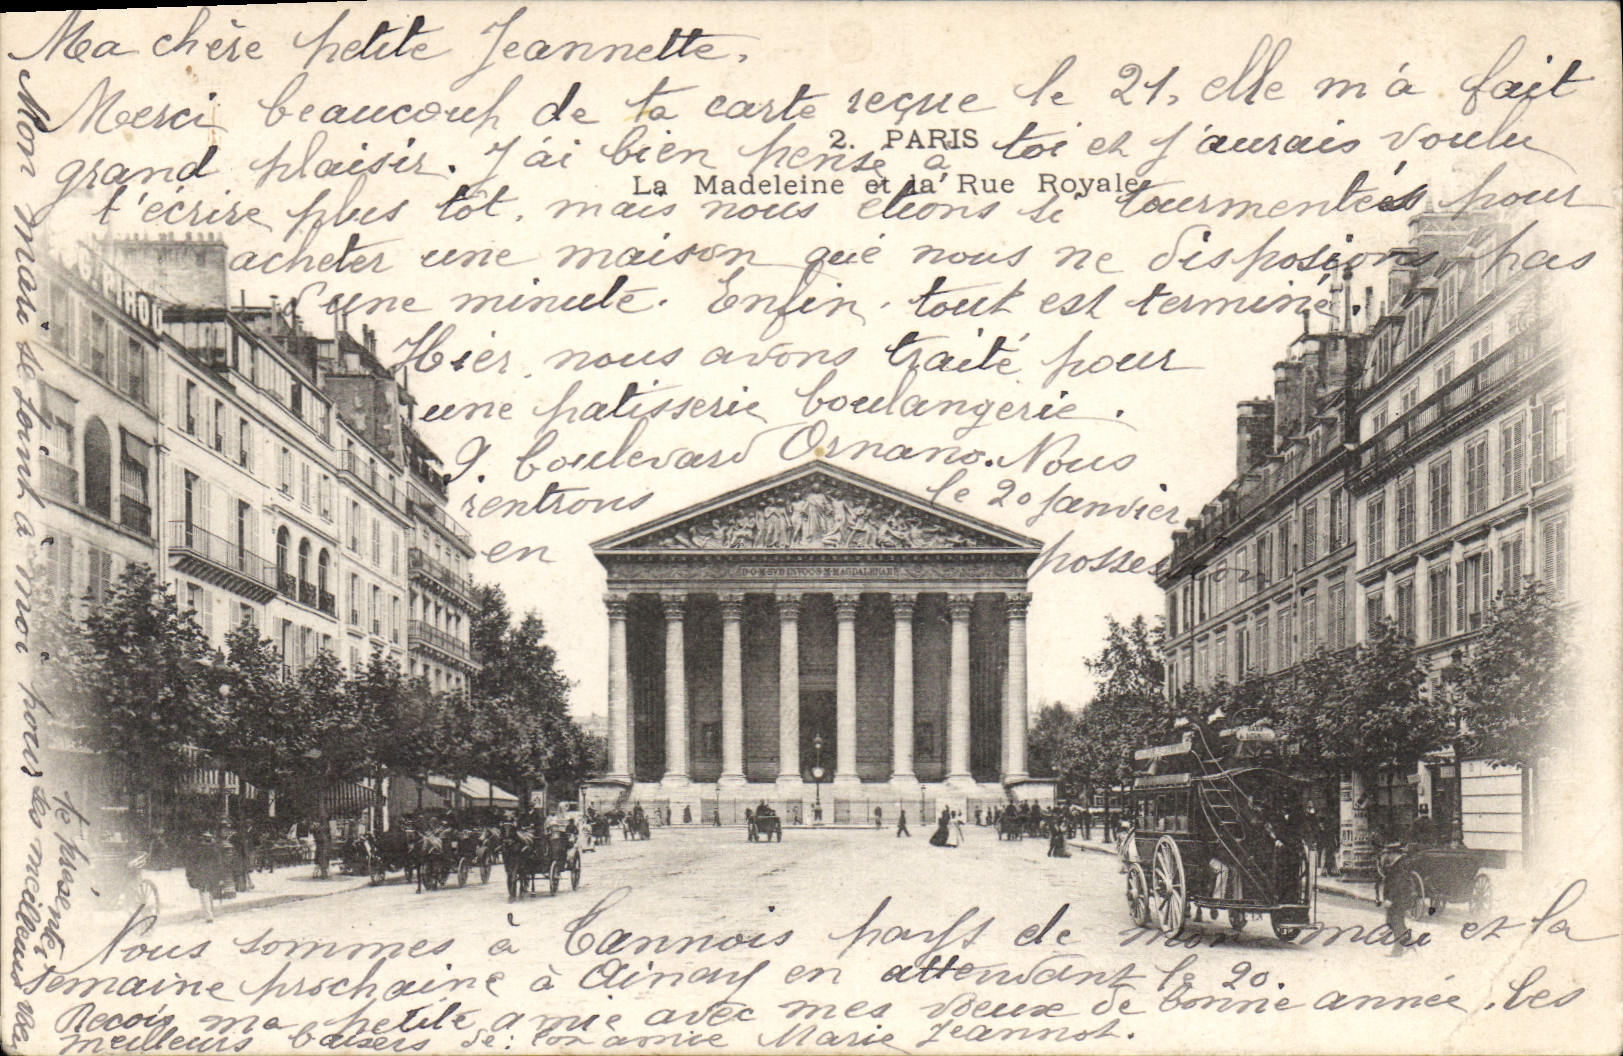 Ma chère petite Jeannette,
Merci beaucoup de ta carte reçue le 21, elle m'a fait
grand plaisir. J'ai bien pensé à toi et j'aurais voulu
t'écrire plus tôt, mais nous étions si tourmentés pour
acheter une maison que nous ne disposions pas
d'une minute. Enfin, tout est terminé.
Hier, nous avons traité pour
une patisserie boulangerie.
9. boulevard Ornano. Nous
rentrons le 20 janvier
en possession
2. PARIS
La Madeleine et la Rue Royale
G. PIROU
D·O·M·SVB·INVOC·S·M·MAGDALENAE
Nous sommes à Cannois pays de mon mari et la
semaine prochaine à Ainay en attendant le 20.
Reçois ma petite amie avec mes vœux de bonne année, les
meilleurs baisers de: ton amie Marie Jeannot.
Mon mari se joint à moi pour
te présenter
les meilleurs